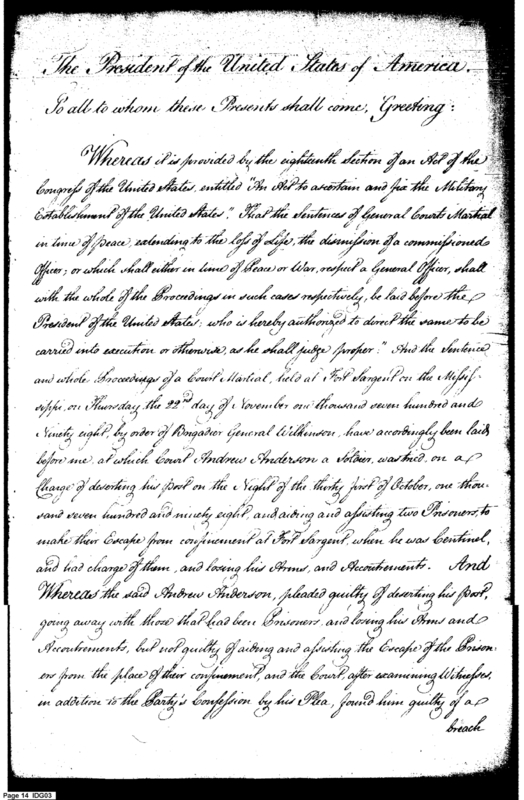 The President of the United States of America.
To all to whom these Presents shall come, Greeting:
Whereas it is provided by the eighteenth Section of an Act of the
Congress of the United States, entitled "An Act to ascertain and fix the Military
Establishment of the United States", "That the Sentences of General Courts Martial
in time of peace, extending to the loss of Life, the dismission of a commissioned
Officer; or which shall either in time of Peace or War, respect a General Officer, shall
with the whole of the Proceedings in such cases respectively, be laid before the
President of the United States; who is hereby authorized to direct the same to be
carried into execution or otherwise, as he shall judge proper:" And the Sentence
and whole Proceedings of a Court Martial, held at Fort Sargent on the Missis-
sippi, on Thursday the 22nd day of November one thousand seven hundred and
Ninety eight, by order of Brigadier General Wilkinson, have accordingly been laid
before me, at which Court Andrew Anderson a Soldier, was tried, on a
Charge of deserting his post on the Night of the thirty first of October, one thou-
sand seven hundred and ninety eight, and aiding and assisting two Prisoners, to
make their Escape from confinement at Fort Sargent, when he was Centinel,
and had charge of them, and losing his Arms, and Accoutrements. And
Whereas the said Andrew Anderson, pleaded guilty of deserting his Post,
going away with those that had been Prisoners, and losing his Arms and
Accoutrements, but not guilty of aiding and assisting the Escape of the Prison-
ers from the place of their confinement, and the Court, after examining Witnesses,
in addition to the Party's Confession by his Plea, found him guilty of a
breach
Page 14 IDG03